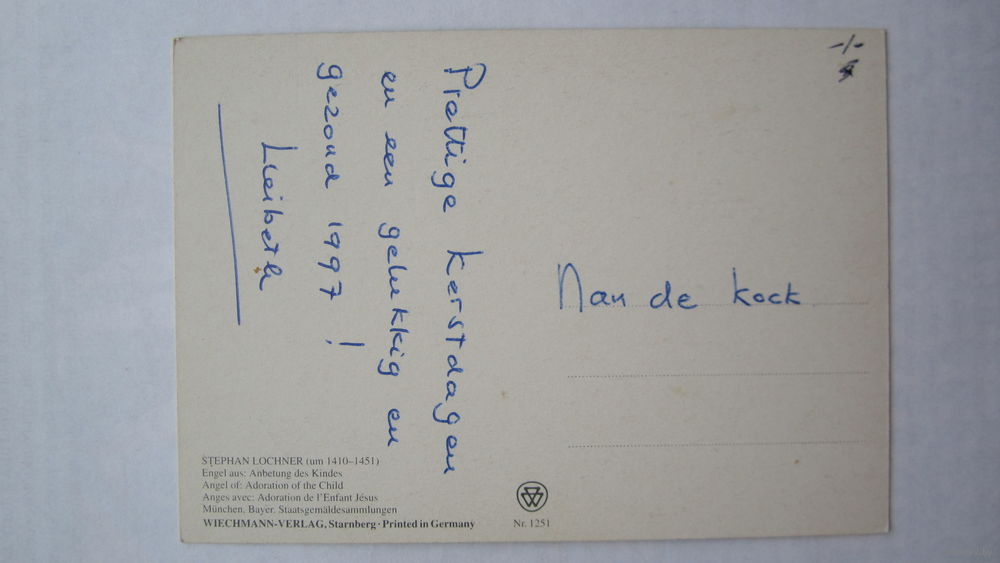 Prettige kerstdagen
en een gelukkig en
gezond 1997 !
Liesbeth
Nan de kock
STEPHAN LOCHNER (um 1410–1451)
Engel aus: Anbetung des Kindes
Angel of: Adoration of the Child
Anges avec: Adoration de l'Enfant Jésus
München, Bayer. Staatsgemäldesammlungen
WIECHMANN-VERLAG, Starnberg · Printed in Germany
Nr. 1251